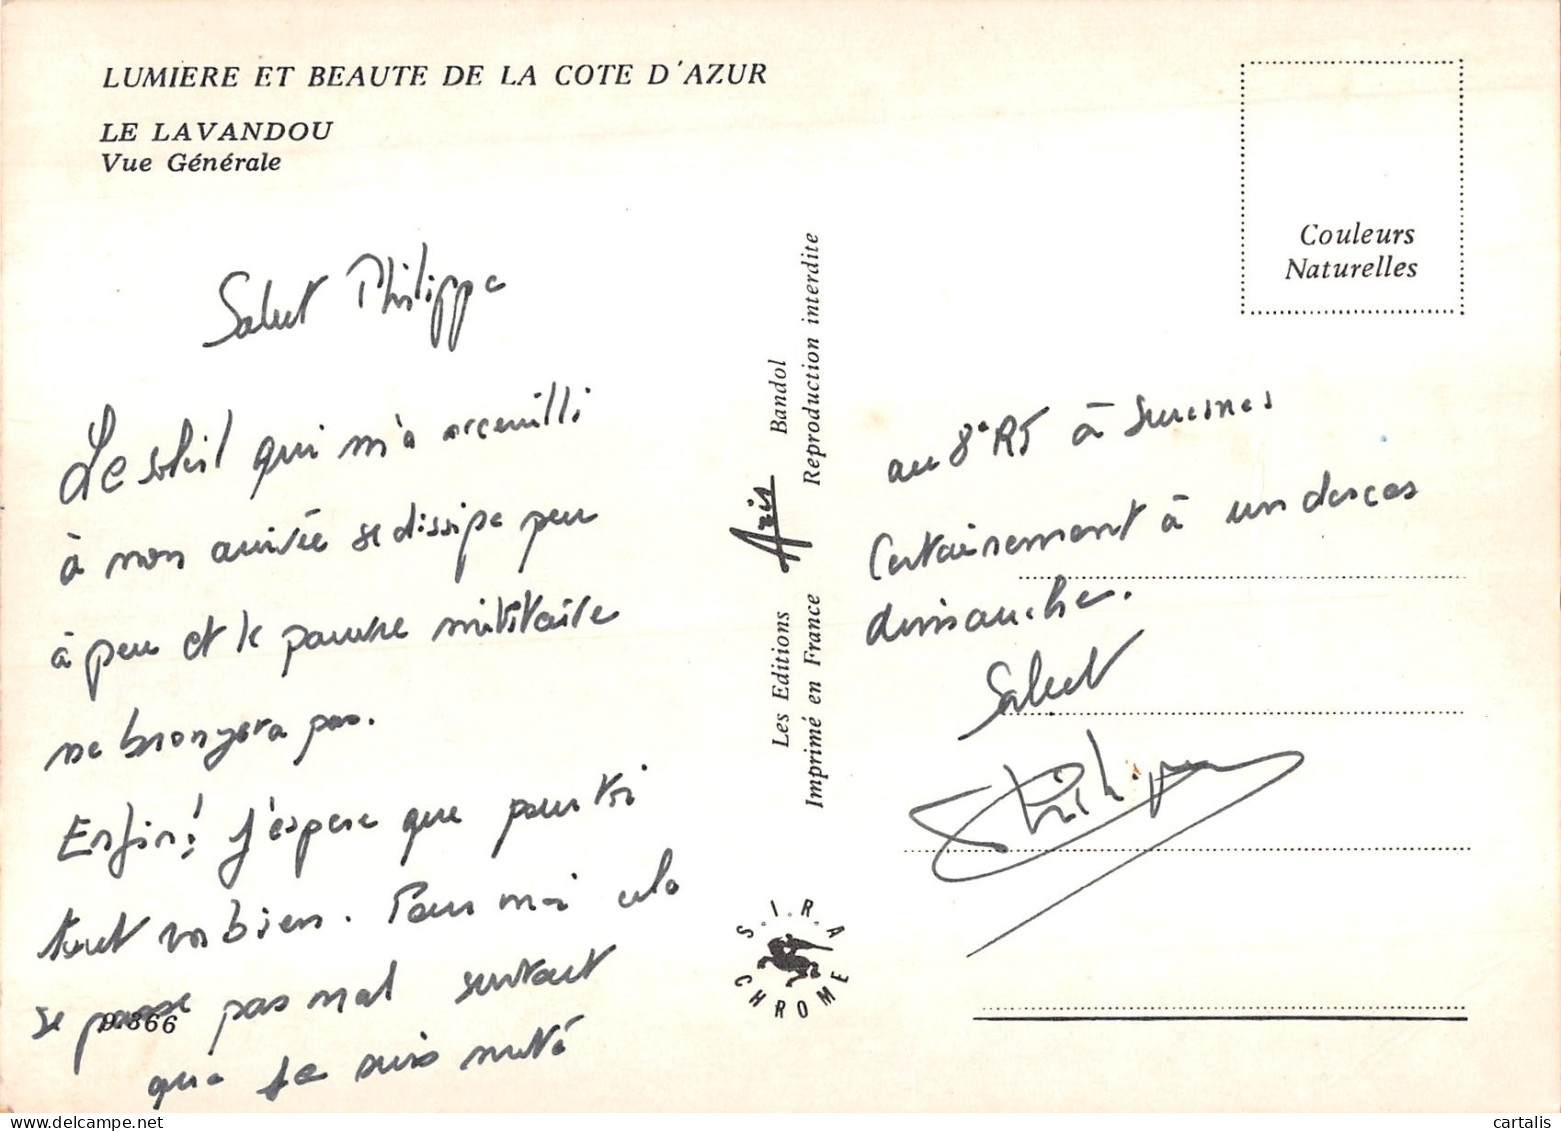 LUMIERE ET BEAUTE DE LA COTE D'AZUR
LE LAVANDOU
Vue Générale
Salut Philippe
Le soleil qui m'a acceuilli
à mon arrivée se dissipe peu
à peu et le pauvre militaire
ne bronzera pas.
Enfin! J'espère que pour toi
tout va bien. Pour moi cela
se passe pas mal surtout
que je suis muté
9.866
Les Editions Aris Bandol
Imprimé en France Reproduction interdite
S.I.R.A
CHROME
Couleurs
Naturelles
au 8e RT à Suresnes
Certainement à un de ces
dimanche.
Salut
Philippe
cartalis